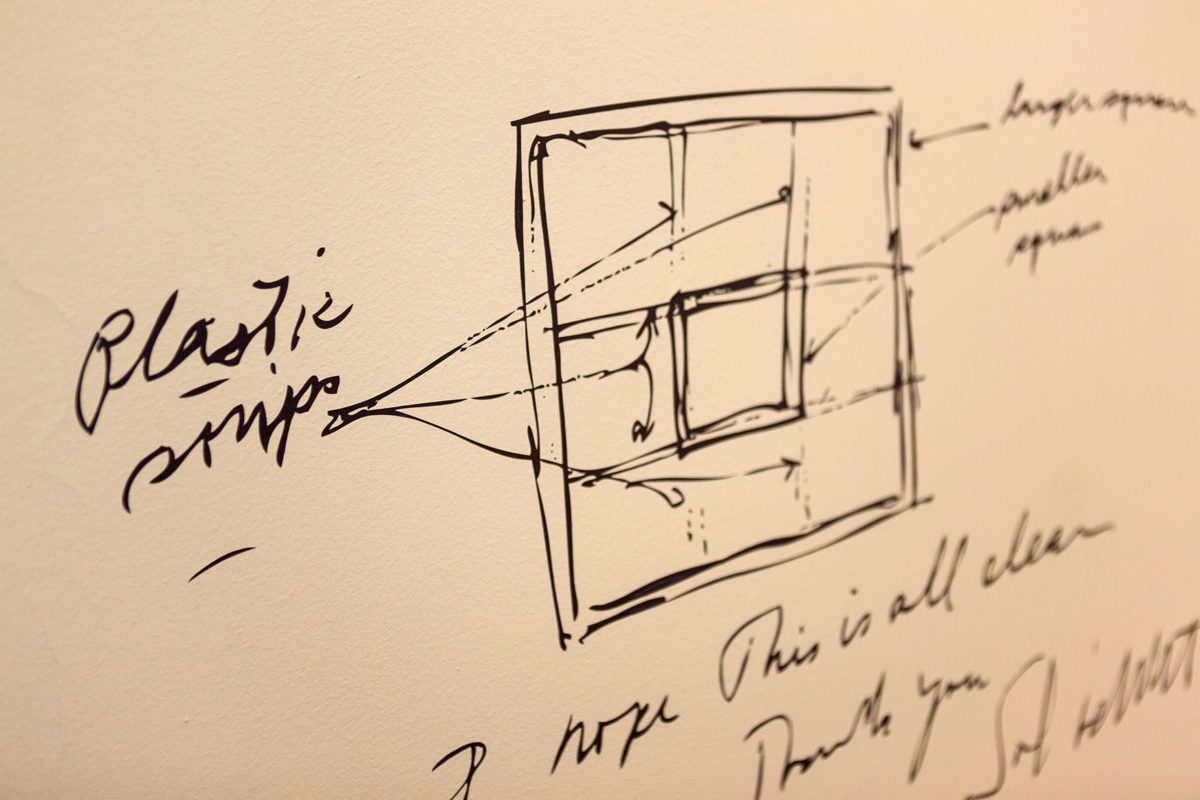 larger square
smaller
square
Plastic
strips
I hope This is all clear
Thank you
Sol LeWitt